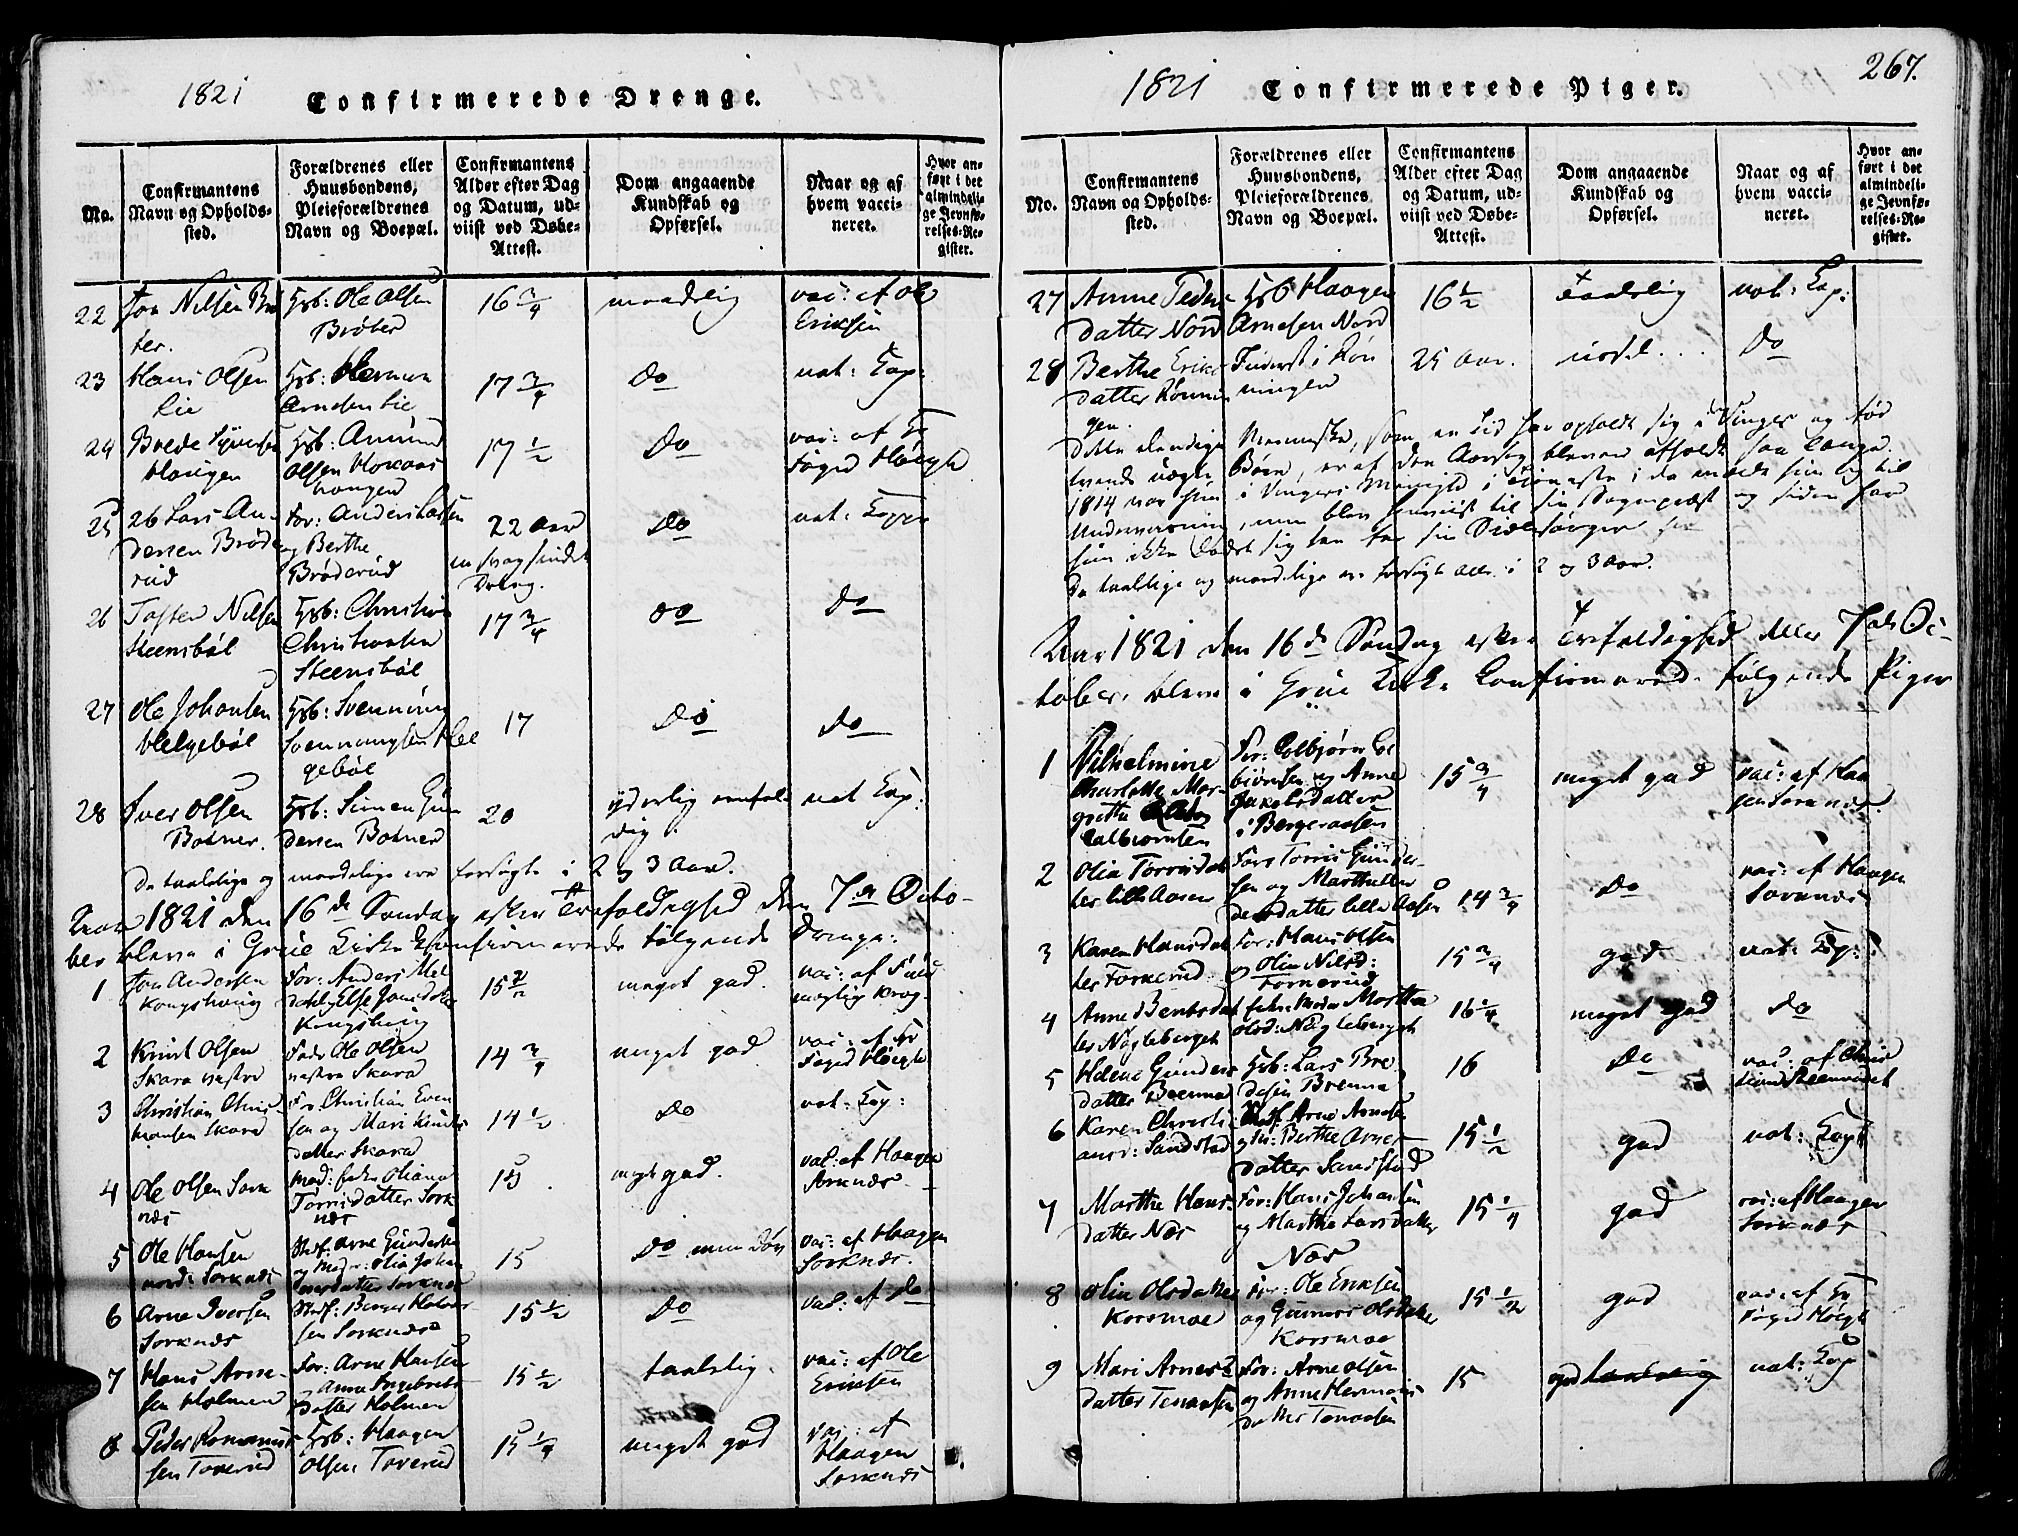 1821 Confirmerede Drenge.
No.
Confirmantens
Navn og Opholds-
sted.
Forældrenes eller
Huusbondens,
Pleieforældrenes
Navn og Boepæl.
Confirmantens
Alder efter Dag
og Datum, ud-
viist ved Døbe-
Attest.
Dom angaaende
Kundskab og
Opførsel.
Naar og af
hvem vacci-
neret.
Hvor an-
ført i det
almindeli-
ge Jevnfø-
relses-Re-
gister.
22 Jon Nilsen Brå
ter.
Hsb: Ole Olsen
Bråter
16 3/4
maadelig
vac: af Ole
Eriksen
23 Hans Olsen
Lie
Hsb: Herman
Arnesen Lie
17 3/4
Do
nat: Kop:
24 Brede Syversen
Haugen
Hsb: Amund
Olsen
17 1/2
Do
vac: af Hr
Foged Høegh
25 26 Lars An-
dersen Brøde
rud
For: Anders Larsen
og Berthe
Brøderud
22 Aar
en svagsindet
Dreng.
Do
nat: Kopp
26 Tosten Nilsen
Steensbøl
Hsb: Christian
Christiansen
Steensbøl
17 3/4
Do
Do
27 Ole Johansen
Helgebøl
Hsb: Svenning
Svenningsen Hel
gebøl
17
Do
Do
28 Iver Olsen
Botner.
Hsb: Simen Gun
dersen Botner
20
yderlig eenfol
dig.
nat Kop:
De taalelige og maadelige ere forsøgte i 2 og 3 Aar.
Aar 1821 den 16de Søndag efter Trefoldighed den 7de Octo-
ber bleve i Grue Kirke Confirmerede følgende Drenge:
1 Jon Andersen
Kongshoug
For: Anders
Else
Kongshoug
15 1/2
meget god.
vac: af
Krog.
2 Knut Olsen
Skara vestre
Fadr Ole Olsen
vestre Skara
14 3/4
meget god
vac: af Hr
Foged Høegh
3 Christian Chris-
tiansen Skara
For: Christian Even
sen og Mari Knuds
datter Skara
14 1/2
Do
nat: Kop:
4 Ole Olsen Sork
næs
Mod: Enke Oliana
Torrisdatter Sork
næs
15
meget god.
vac: af Haagen
Sorknæs
5 Ole Hansen
nordr: Sorknæs
Stedf: Arne Gundersen
og Moder: Olia Johan
nesdatter Sorknæs
15
Do men døv
vac: af Haagen
Sorknæs.
6 Arne Iversen
Sorknæs
Stedf: Berger Halvor
sen Sorknæs
15 1/2
Do
vac: af Do
7 Hans Arne-
sen Holmen
For: Arne Hansen
og Anne Ingebrets
datter Holmen
15 1/2
taalelig.
vac: af Ole
Eriksen
8 Peder Romanus
sen Toverud
Hsb: Haagen
Olsen Toverud
15 1/4
meget god
vac: af
Haagen
Sorknæs
267.
1821 Confirmerede Piger.
No.
Confirmantens
Navn og Opholds-
sted.
Forældrenes eller
Huusbondens,
Pleieforældrenes
Navn og Boepæl.
Confirmantens
Alder efter Dag
og Datum, ud-
viist ved Døbe-
Attest.
Dom angaaende
Kundskab og
Opførsel.
Naar og af
hvem vacci-
neret.
Hvor an-
ført i det
almindeli-
ge Jevnfø-
relses-Re-
gister.
27 Anne Peders
datter Nord
Hsb Haagen
Arnesen Nord
16 1/2
taalelig
nat: Kop:
28 Berthe Eriks
datter Rønnin
gen.
Inderst i Røn
ningen
25 Aar.
Do
Dette elendige Menneske, som en Tid har opholdt sig i Vinger og fød
tvende uægte Børn, er af den Aarsag bleven afholdt saa længe.
1814 var hun i Vingers Menighed i Tieneste, i da meldte hun sig til
Underviisning, men blev henviist til sin Sogneprest og siden har
hun ikke ladet sig see for sin Sielesørger før
De taalelige og maadelige ere forsøgte alle i 2 og 3 Aar.
Aar 1821 den 16de Søndag efter Trefoldighed eller 7de Oc-
tober, bleve i Grue Kirke Confirmerede følgende Piger
1 Vilhelmine
Charlotte Mar-
grethe
Colbiørnsen
For: Colbjørn Col
biørnsen og Anne
Jakobsdatter
i Bergeraasen
15 3/4
meget god
vac: af Haa
gen Sorknæs
2 Olia Torrisdat
ter lille Aasen
Fors Torris Gunder-
sen og Marthe
datter lille Aasen
14 3/4
Do
vac: af Haagen
Sorknæs
3 Karen Hansdat
ter Fornerud
For: Hans Olsen
og Olia Nilsd:
Fornerud
15 3/4
god
nat: Kop:
4 Anne Berntsdat
ter Nøgleberget
Enke: Moder Marthe
Olsd: Nøgleberget
16 1/4
meget god
Do
5 Helene Gunders
datter Brenna
Hsb: Lars Bre
desen Brenna
16
Do
vac: af Chris
6 Karen Christi
ansd: Sandstad
Stedf. Arne Arnesen
og M: Berthe Arnes
datter Sandstad
15 1/2
god
nat: Kop
7 Marthe Hans-
datter Næs
For: Hans Johansen
og Marthe Larsdatter
Næs
15 1/4
god
vac: af Haagen
Sorknæs
8 Olia Olsdatter
Korsmoe
For: Ole Eriksen
og Gunnor Olsdatter
Korsmoe
15 1/2
god
vac: af Hr
Foged Høegh
9 Mari Arnes
datter Tenaasen
For: Arne Olsen
og Anne Hermans
datter Tenaasen
15
god taalelig
nat: Kop